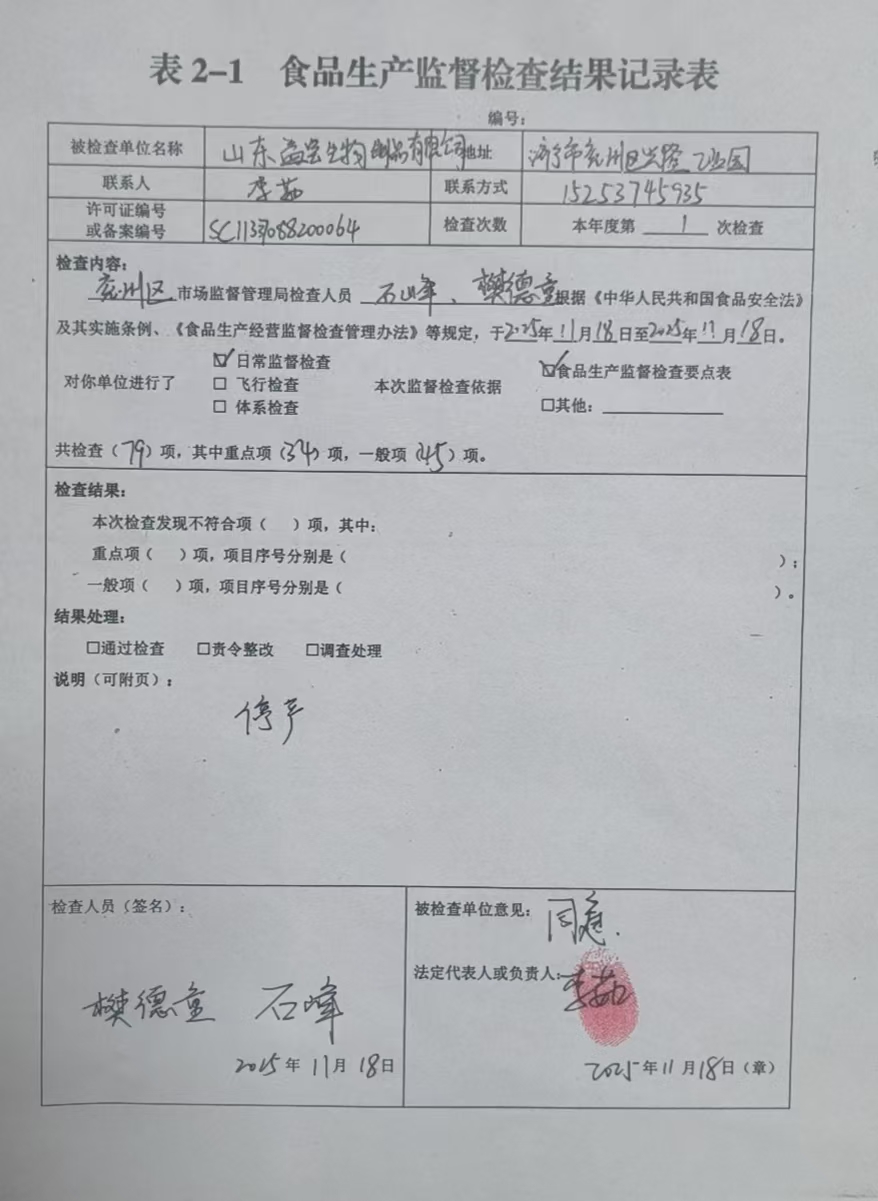 表 2-1 食品生产监督检查结果记录表
编号：
被检查单位名称 山东益宝生物制品有限公司 地址 济宁市兖州区兴隆工业园
联系人 李茹 联系方式 15253745935
许可证编号
或备案编号 SC11337088200064 检查次数 本年度第 1 次检查
检查内容：
兖州区 市场监督管理局检查人员 石峰、樊德童 根据《中华人民共和国食品安全法》
及其实施条例、《食品生产经营监督检查管理办法》等规定，于2025年11月18日至2025年11月18日。
☑日常监督检查
对你单位进行了 □ 飞行检查 本次监督检查依据 ☑食品生产监督检查要点表
□ 体系检查 □其他：
共检查（79）项，其中重点项（34）项，一般项（45）项。
检查结果：
本次检查发现不符合项（ ）项，其中：
重点项（ ）项，项目序号分别是（ ）；
一般项（ ）项，项目序号分别是（ ）。
结果处理：
□通过检查 □责令整改 □调查处理
说明（可附页）：
停产
检查人员（签名）： 被检查单位意见： 同意.
法定代表人或负责人： 李茹
樊德童 石峰
2025年11月18日 2025年11月18日（章）